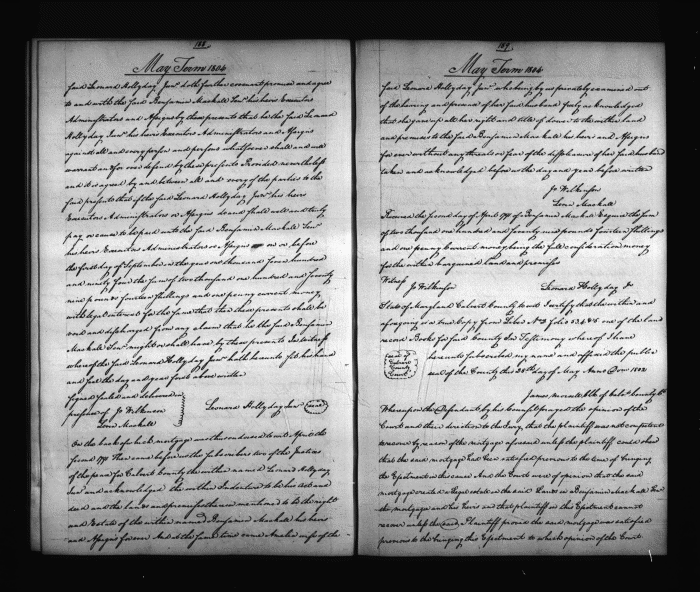 188
May Term 1804
said Leonard Hollyday Junr doth further covenant promise and agree
to and with the said Benjamin Mackall Senr his heirs Executors
Administrators and Assigns by these presents that he the said Leonard
Hollyday Junr his heirs Executors Administrators and Assigns
against all and every person and persons whatsoever shall and will
warrant and forever defend by these presents Provided nevertheless
and it is agreed by and between all and every of the parties to the
said presents that if the said Leonard Hollyday Junr his heirs
Executors Administrators or Assigns do and shall well and truly
pay or cause to be paid unto the said Benjamin Mackall Senr
his heirs Executors Administrators or Assigns on or before
the first day of September in the year one thousand seven hundred
and ninety four the sum of two thousand one hundred and seventy
nine pounds fourteen shillings and one penny current money
with legal interest for the same that then these presents shall be
void and discharged from any claim that he the said Benjamin
Mackall Senr might or shall have by these presents In witness
whereof the said Leonard Hollyday Junr hath hereunto set his hand
and seal the day and year first above written
Signed sealed and delivered in
presence of Jo Wilkinson
Levin Mackall
Leonard Hollyday Junr (seal)
On the back of which mortgage was thus endorsed to wit April the
second 1791 Then came before us the subscribers two of the Justices
of the peace for Calvert County the within named Leonard Hollyday
Junr and acknowledged the within Indenture to be his act and
deed and the lands and premises therein mentioned to be the right
and Estate of the within named Benjamin Mackall his heirs
and Assigns forever And at the same time came Amelia wife of the
189
May Term 1804
said Leonard Hollyday Junr who being by us privately examined out
of the hearing and presence of her said husband freely acknowledged
that she gave up all her right and title of dower to the within land
and premises to the said Benjamin Mackall his heirs and Assigns
for ever without any threats or fear of the displeasure of her said husband
taken and acknowledged before us the day and year before written
Jo Wilkinson
Levin Mackall
Received the second day of April 1791 of Benjamin Mackall Esquire the sum
of two thousand one hundred and seventy nine pounds fourteen shillings
and one penny Current money being the full consideration money
for the within bargained land and premises
Witness Jo Wilkinson
Leonard Hollyday Jr
State of Maryland Calvert County to wit I certify that the within and
aforegoing is a true Copy from Liber No folio 53,4&5 one of the land
record Books for said County In Testimony whereof I have
hereunto subscribed my name and affixed the public
seal of the County this 20th day of May Anno Dom 1802
Seal of
Calvert
County
Court
Whereupon the Defendants by his Counsel prayed the opinion of the
Court and their direction to the Jury, that the plaintiff was not competent
to recover by reason of the mortgage aforesaid unless the plaintiff could shew
that the said mortgage had been satisfied previous to the time of bringing
the Ejectment in this cause And the Court were of opinion that the said
mortgage created a legal estate in the said Lands in Benjamin Mackall Senr
the mortgagee and his heirs and that plaintiff in this Ejectment cannot
recover unless the said Plaintiff proved the said mortgage was satisfied
previous to the bringing this Ejectment to which opinion of the Court